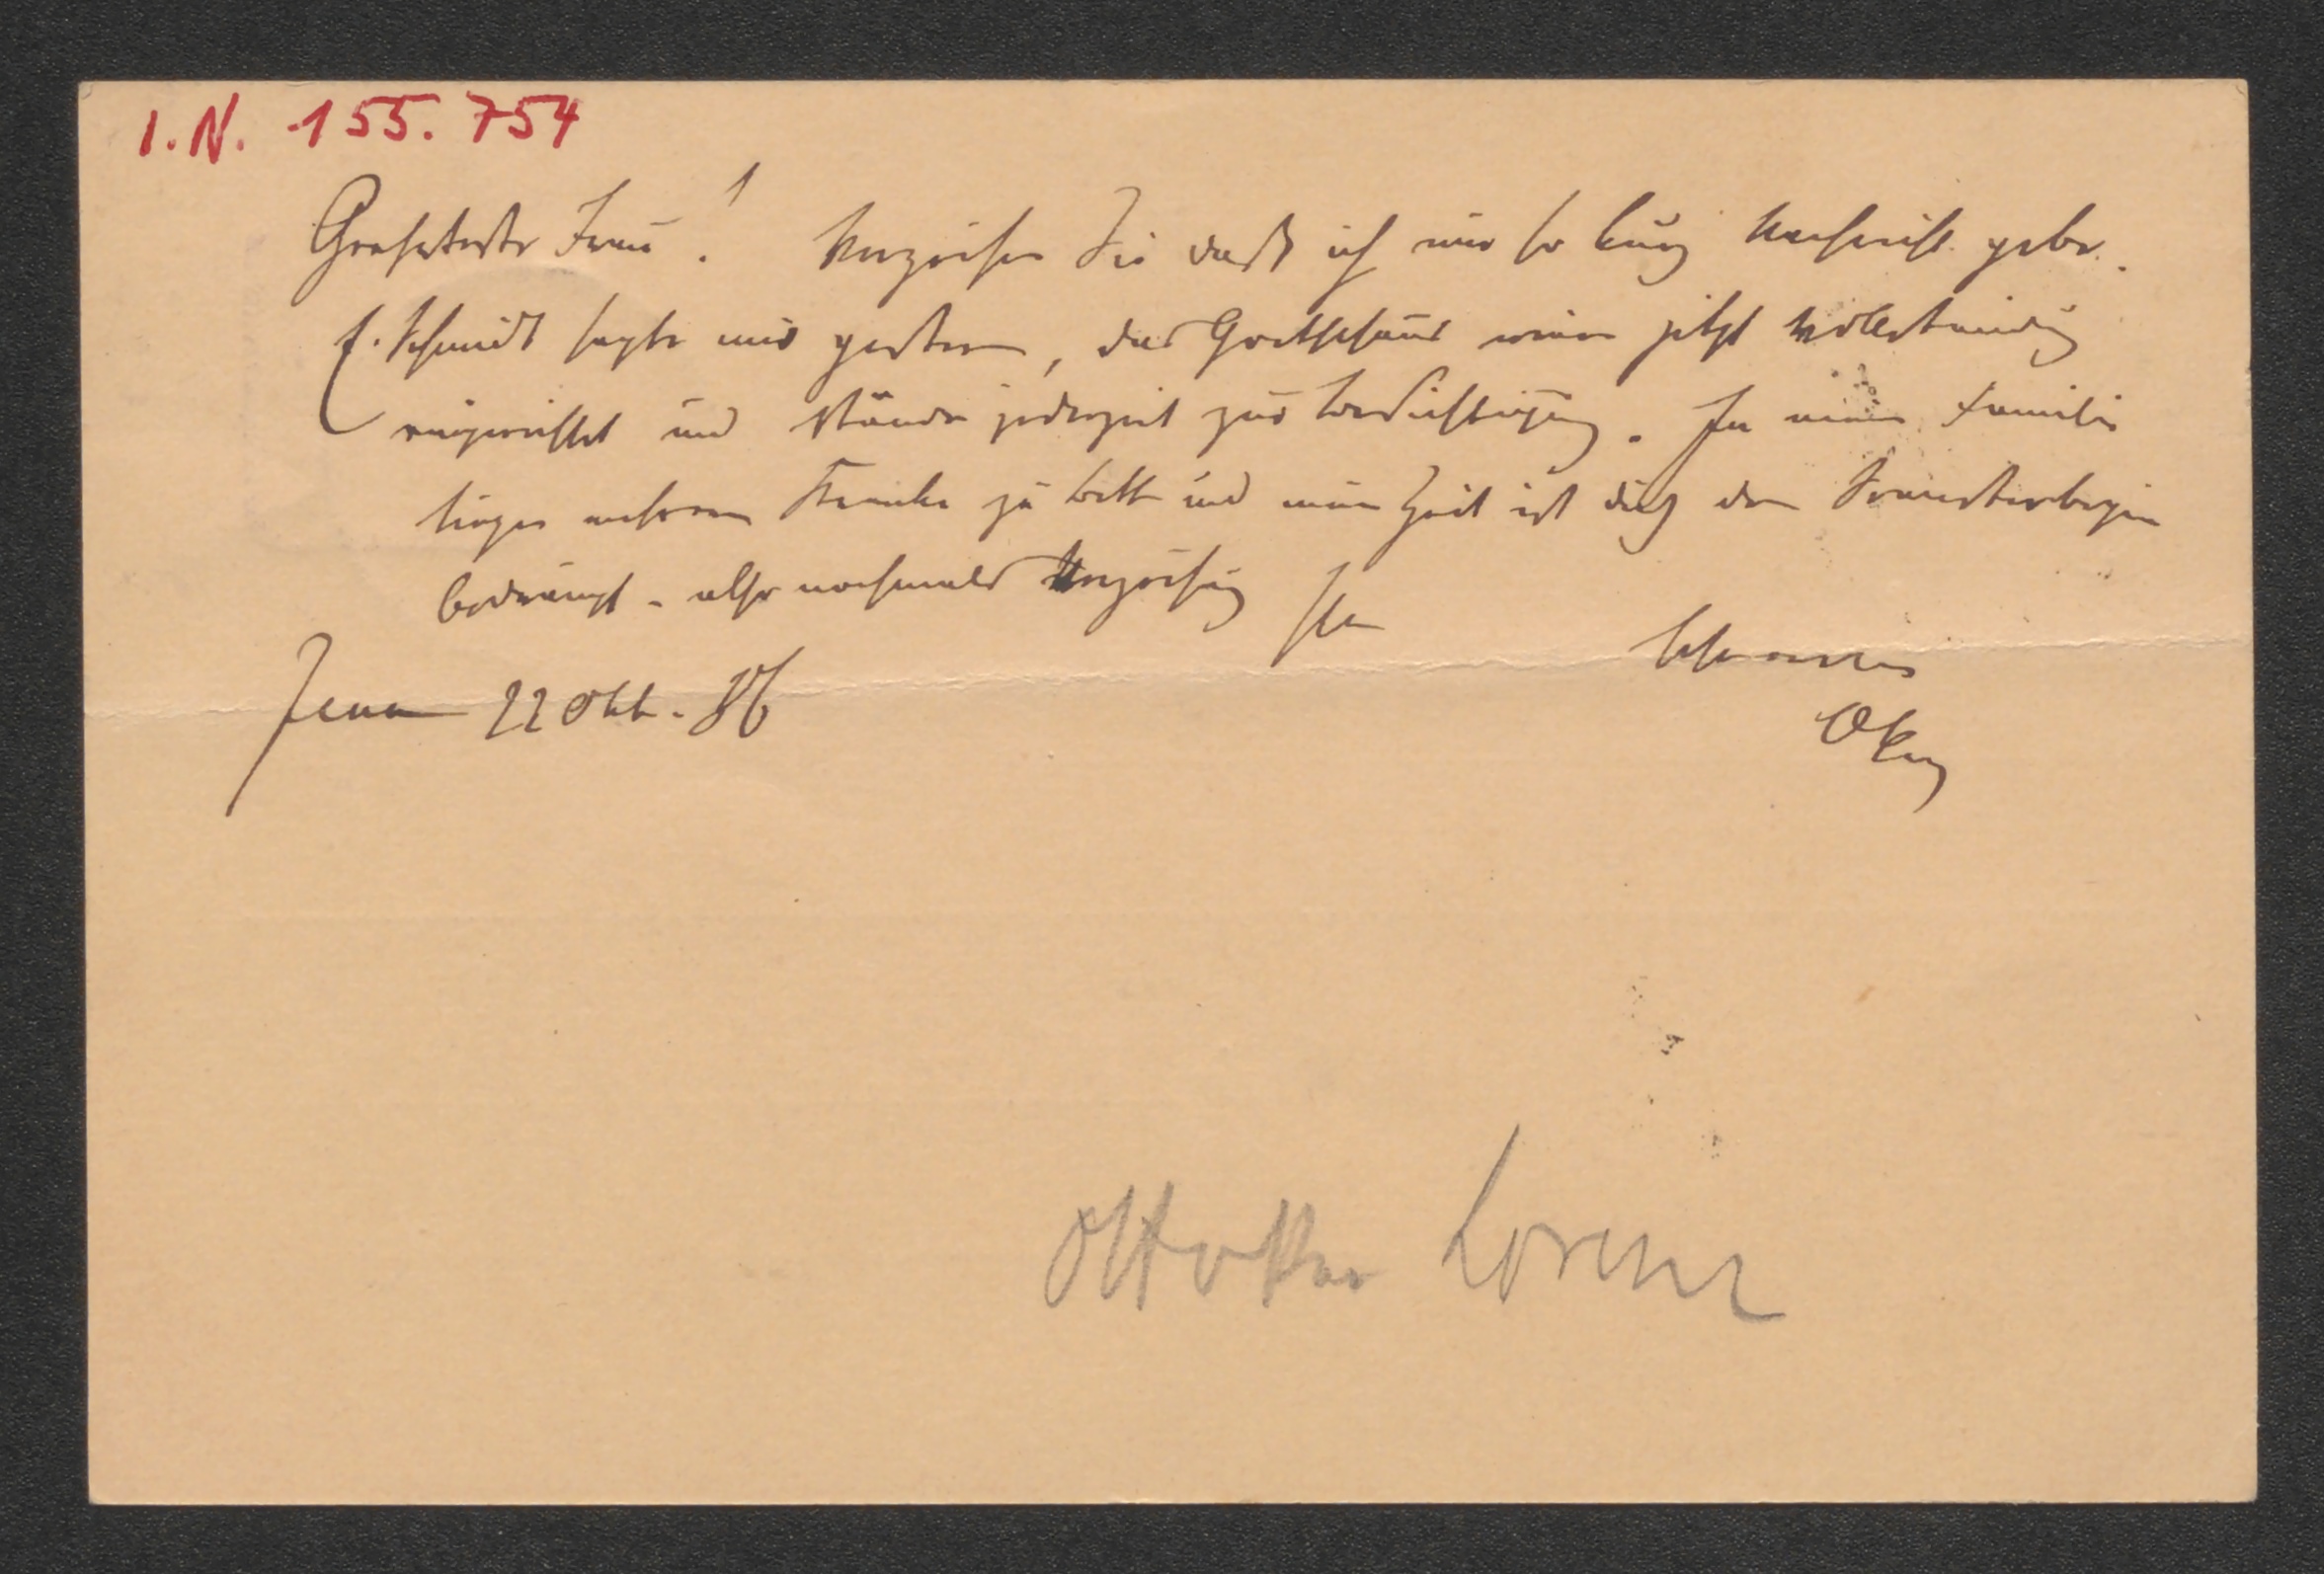 I.N. 155.754
Geehrteste Frau! Verzeihen Sie daß ich nur so kurz Nachricht gebe.
E. Schmidt sagte mir gestern, das Goethehaus wäre jetzt vollständig
eingerichtet und stände jederzeit zur Besichtigung. In meiner Familie
liegen mehrere Kranke zu Bett und meine Zeit ist durch den Semesterbeginn
bedrängt - also nochmals Verzeihung Ihr
Jena 22 Okt. 86
OLorenz
Ottokar Lorenz